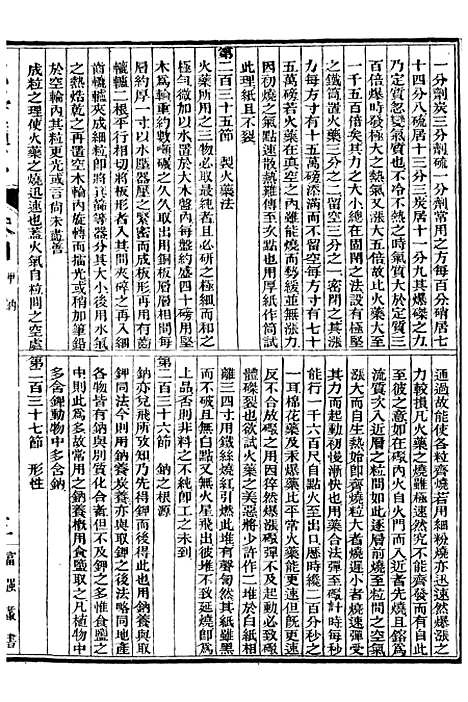 一分劑炭三分劑硫一分劑常用之方每百分硝居七
十四分八硫居十三分三炭居十一分九其爆磔之力
乃定質忽變氣質也此火藥不甚熱之時氣質大於定質三
百倍爆時發極大之熱氣又漲大五倍故比火藥大至
一千五百倍矣其力之大小總在固閉之法設有極堅
之鐵筒置火藥三分之二留空三分之一密閉之其漲
力每方寸有十五萬磅添滿而不留空每方寸有七十
五萬磅若火藥在真空之內雖能燒而勢緩並無漲力
因初燒之氣點速散熱難傳至次點也用厚紙作筒試
此理紙且不裂
第二百三十五節 製火藥法
火藥所用之三物必取最純者且必研之極細而和之
極勻微加以水置於大木盤內每盤約盛四十磅用堅
木為輪重約數噸碾之久久取出用銅板層層相間每
層約厚一寸以水壓器壓之緊密而成板形再用有齒
轆轤二根平行相切將板形者入其間夾碎之再入細
齒轆轤夾成細粒卽將汰淪等器分其大小後用水氣
之熱焙乾之再置空木輪內旋轉而擂光或稍加筆鉛
於空輪內其粒更光或言尙未盡善
成粒之理使火藥之燒迅速也蓋火氣自粒間之空處
通過故能使各粒齊燒若用細粉燒亦迅速然爆漲之
力較損凡火藥之燒雖極速然究不能齊發而有自此
至彼之意如在礮內火自火門而入直至出口且鎔爲
流質次入近層之粒間如此逐層前燒至粒盡而定質
漲大而自生熱始卽齊燒粒大者燒遲小者燒速彈受
其力而起動初後漸快也用此藥合法準至礮計時每秒
能行一千六百尺自點火至出口歷時纔二百分秒之
一耳棉花藥及汞爆藥比平常火藥能更速但旣更速
反不合於用放礮彈不及起動必致漲裂礮彈不及
體磔裂也欲試火藥之美惡將少許作二堆於白紙相
離三四寸用鐵絲燒紅引燃此堆有聲匉而其紙雖黑
而不破且無白點又無火星飛出彼堆亦不延燒卽爲
上品否則非料之不純卽工之未到
第二百三十六節 鈉之根源
鈉亦兌飛所攷知乃先得鉀而後得此也用鈉養與取
鉀同法今則用鈉養炭養亦與取鉀之後法略同地產
各物皆有鈉與別質化合者但不及鉀之多惟食鹽之
中則此爲多故常用之鈉養檓用食鹽取之凡植物中
多含鉀動物中多含鈉
第二百三十七節 形性
鉀 鈉
富强叢書